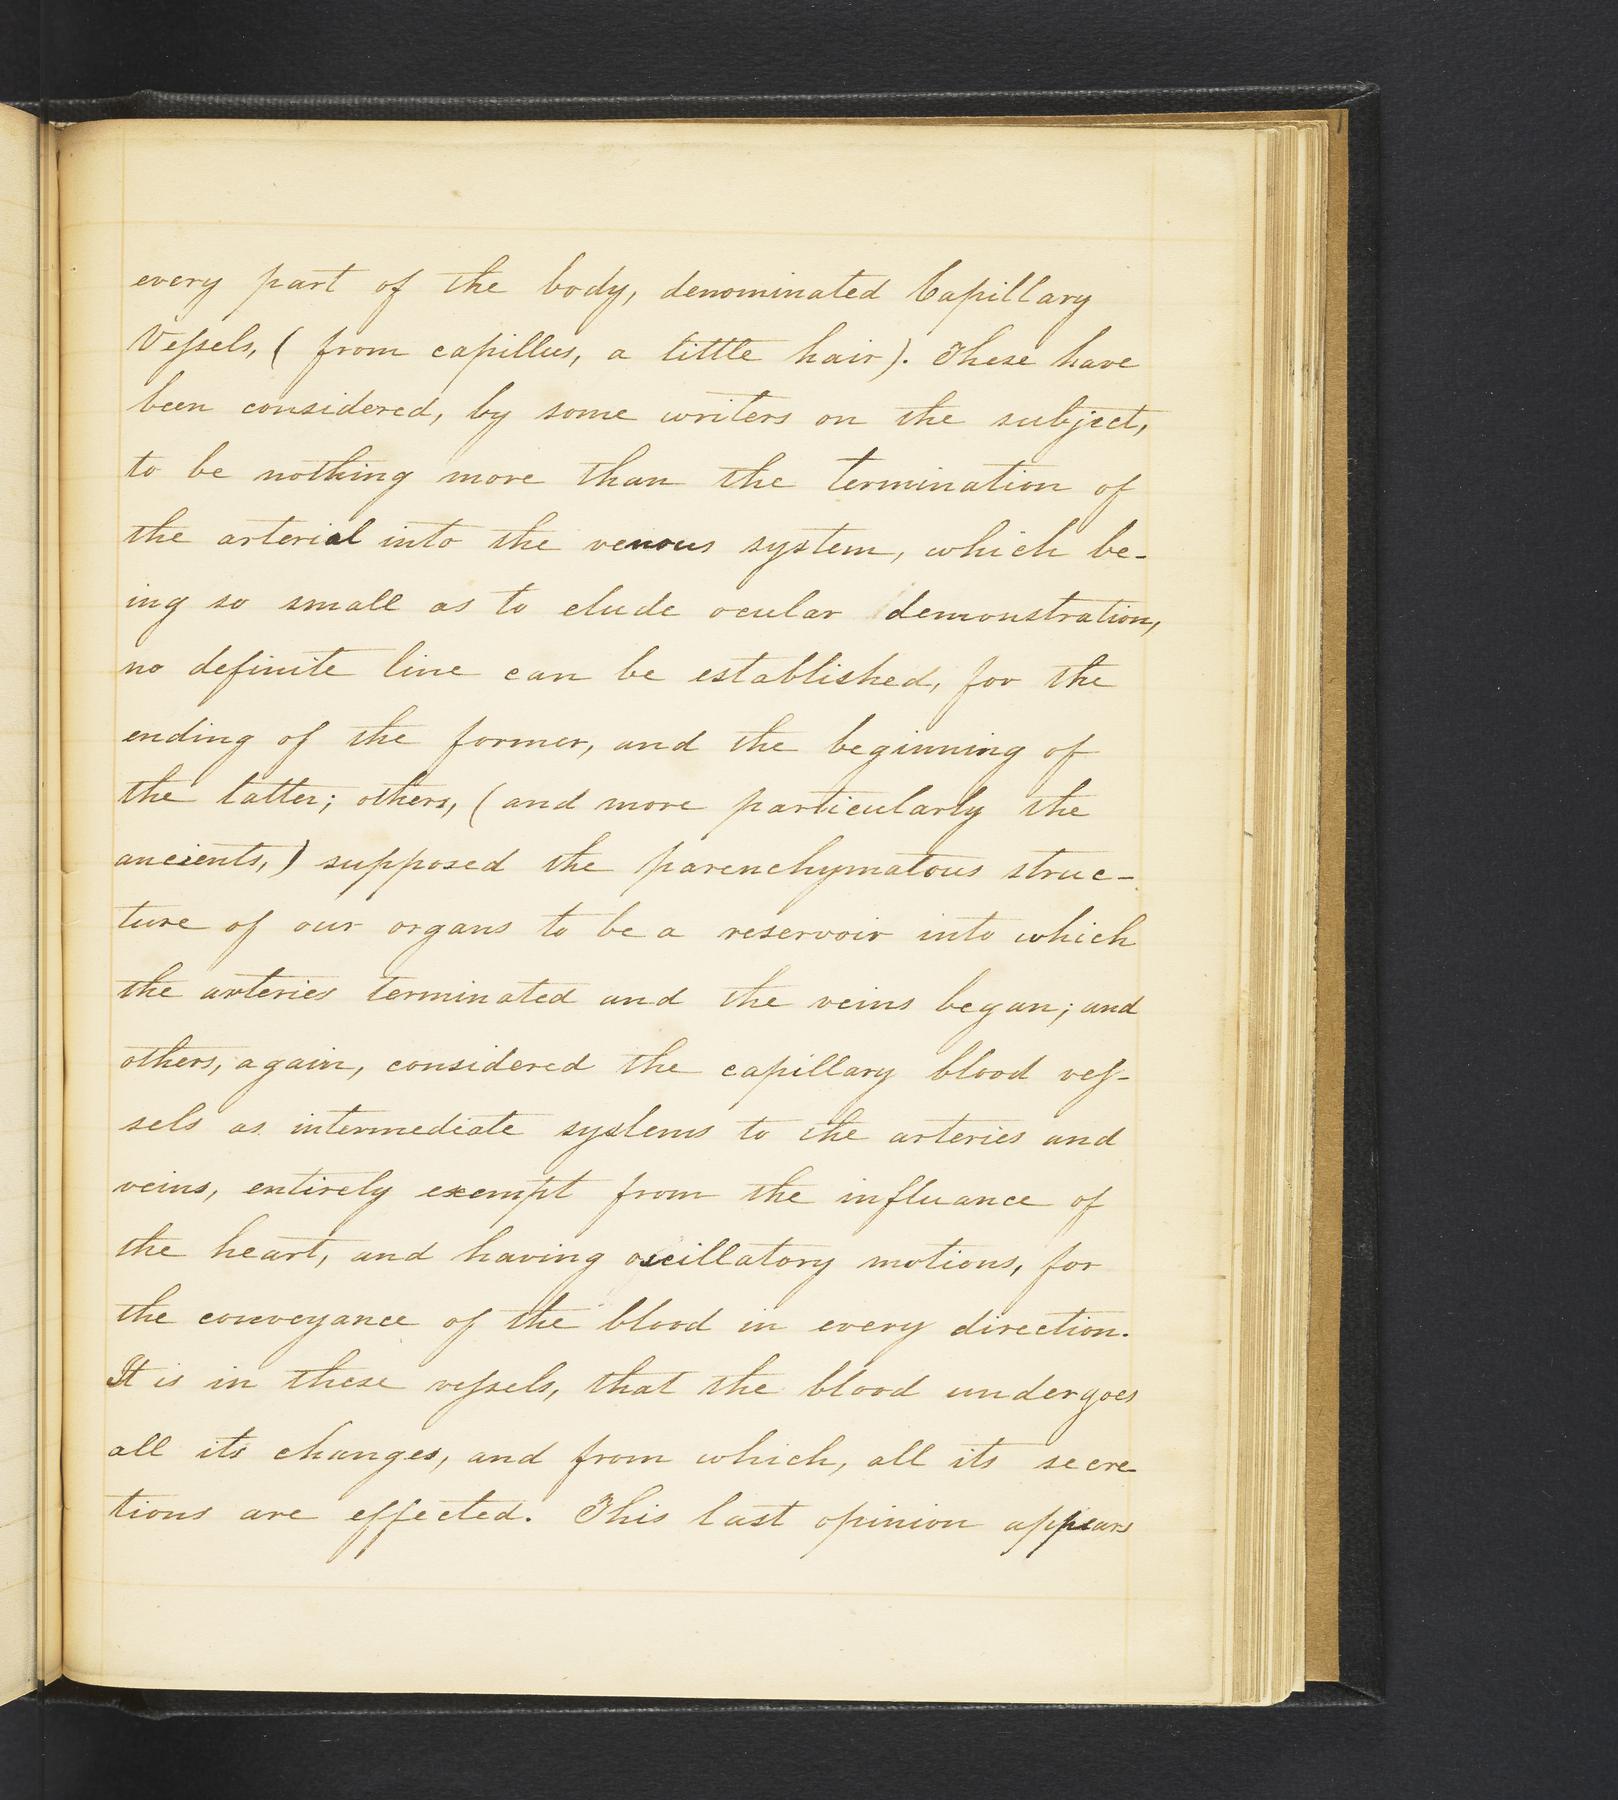 every part of the body, denominated Capillary
Vessels, ( from capillus, a little hair). These have
been considered, by some writers on the subject,
to be nothing more than the termination of
the arterial into the venous system, which be-
ing so small as to elude ocular demonstration,
no definite line can be established, for the
ending of the former, and the beginning of
the latter; others, ( and more particularly the
ancients, ) supposed the parenchymatous struc-
ture of our organs to be a reservoir into which
the arteries terminated and the veins began; and
others, again, considered the capillary blood ves-
sels as intermediate systems to the arteries and
veins, entirely exempt from the influance of
the heart, and having oscillatory motions, for
the conveyance of the blood in every direction.
It is in these vessels, that the blood undergoes
all its changes, and from which, all its secre
tions are effected. This last opinion appears